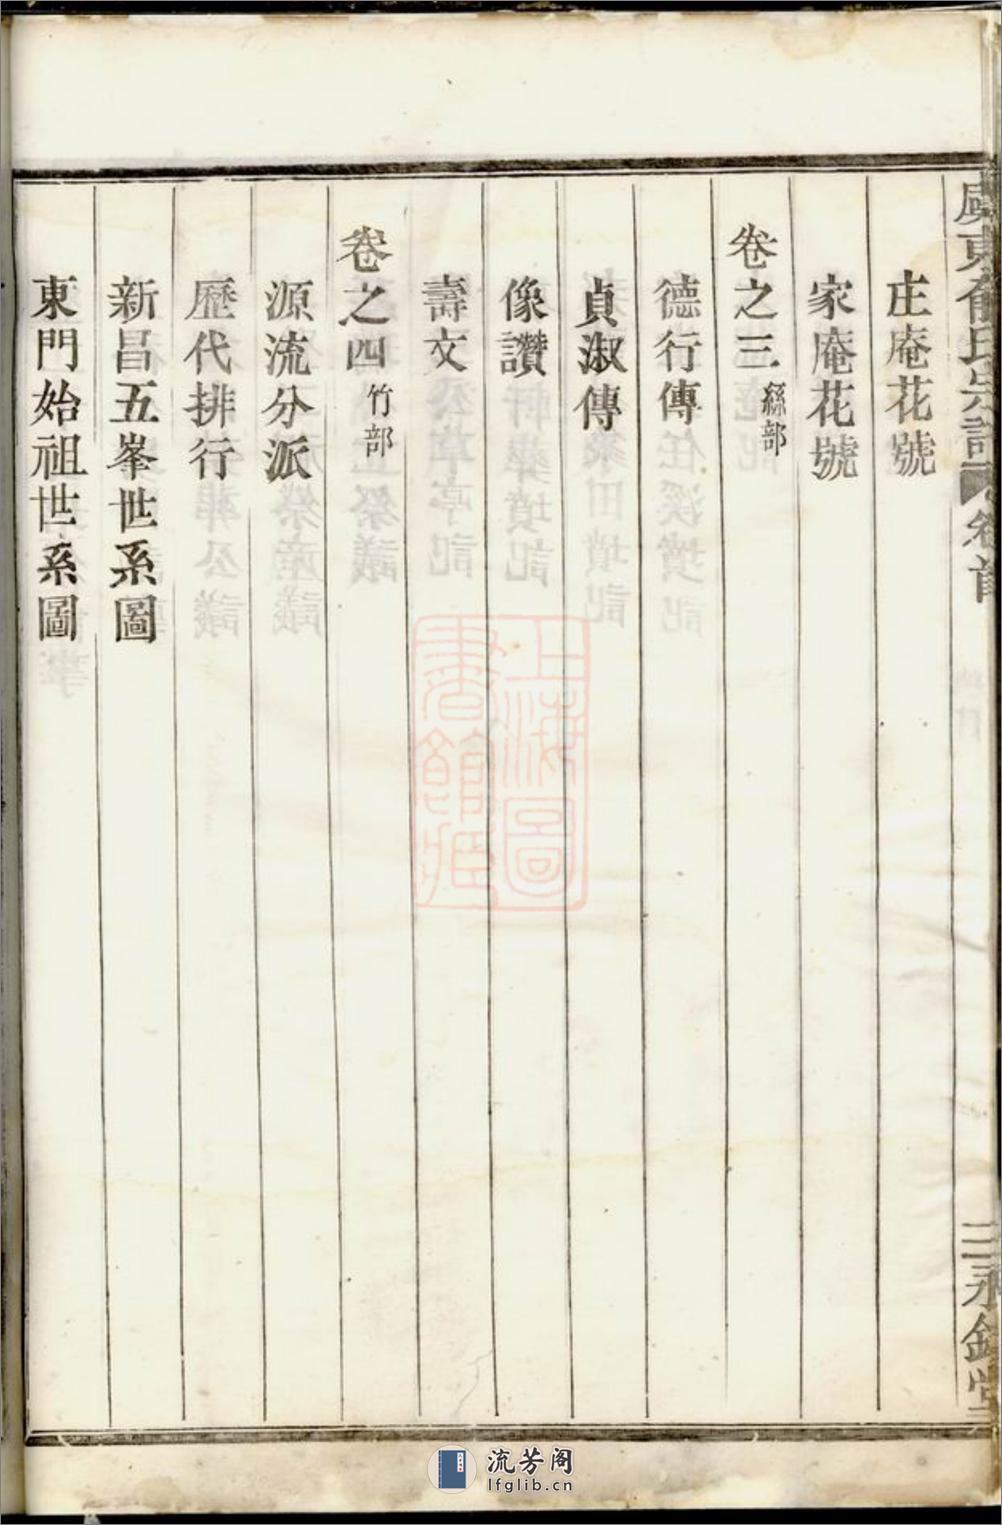 庄庵花號
家庵花號
卷之三 絲部
德行傳
貞淑傳
像讚
壽文
卷之四 竹部
源流分派
歷代排行
新昌五峯世系圖
東門始祖世系圖
上海圖書館藏
流芳阁
lfglib.cn